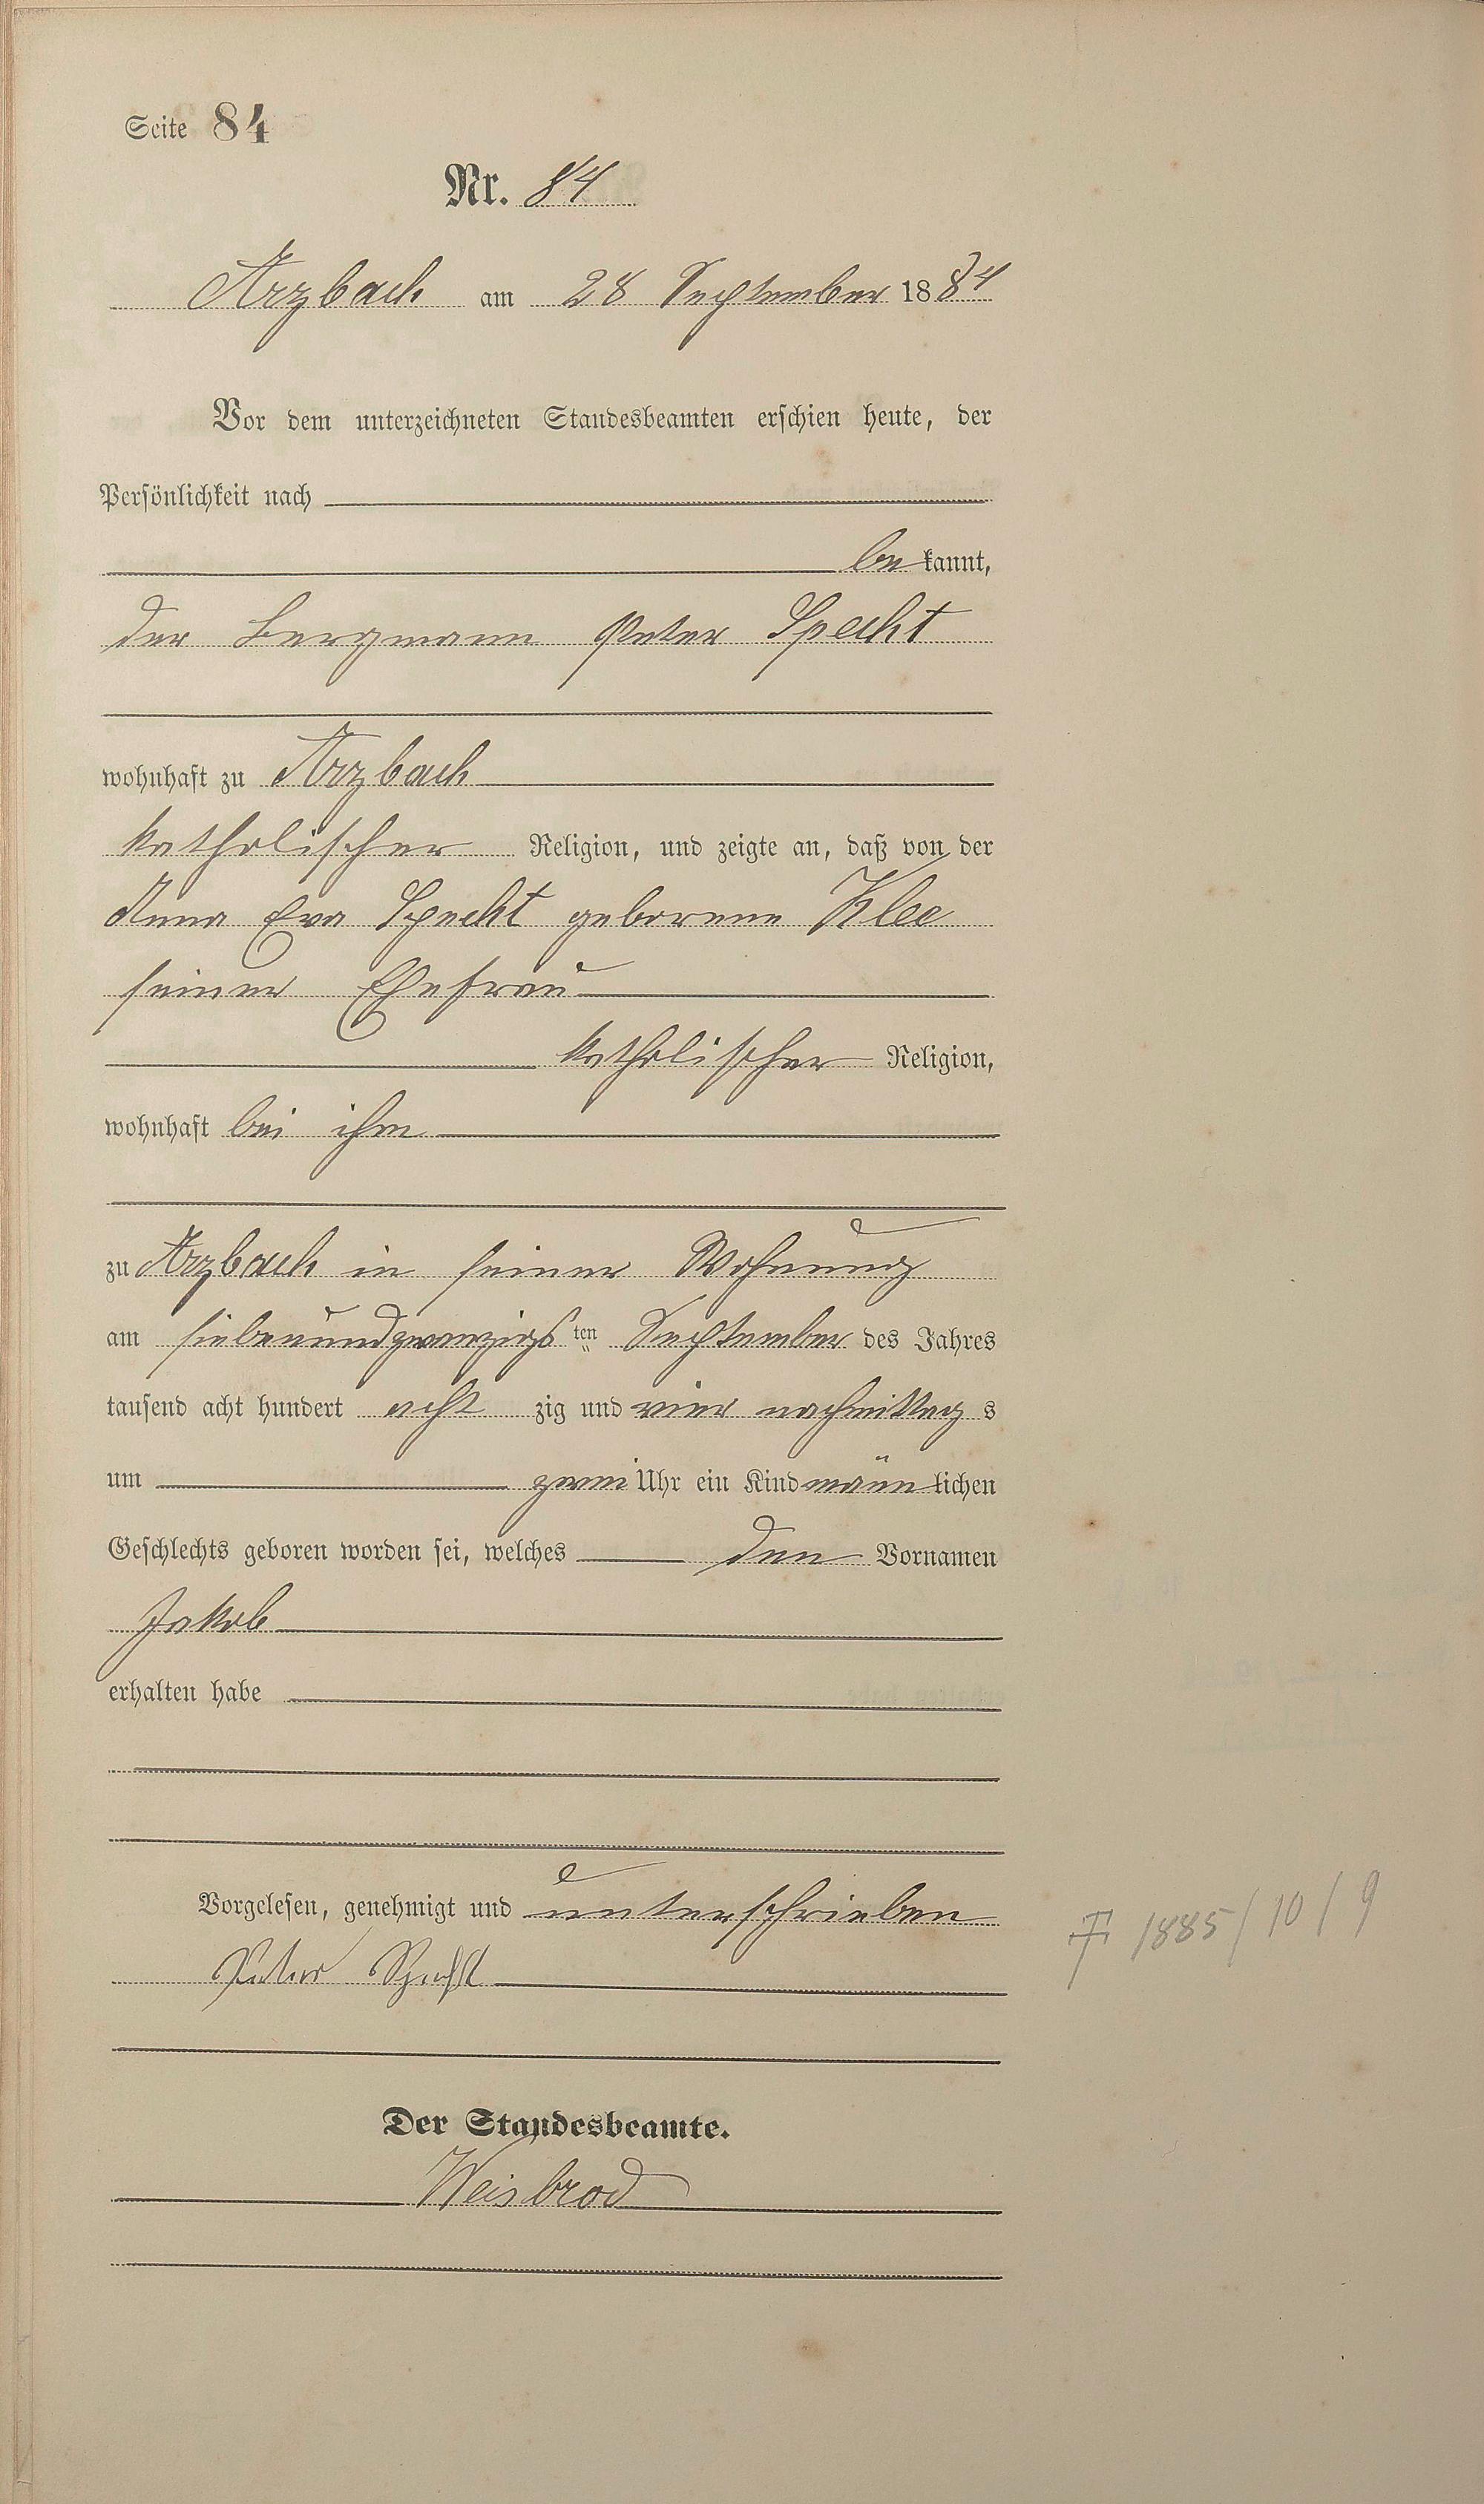 Seite 84
Nr. 84
Arzbach am 28 September 1884
Vor dem unterzeichneten Standesbeamten erschien heute, der
Persönlichkeit nach
bekannt,
der Bergmann Peter Specht
wohnhaft zu Arzbach
katholischer Religion, und zeigte an, daß von der
Anna Eva Specht geborene Klee
seiner Ehefrau
katholischer Religion,
wohnhaft bei ihm
zu Arzbach in seiner Wohnung
am siebenundzwanzigsten September des Jahres
tausend acht hundert achtzig und vier nachmittags
um zwei Uhr ein Kind männlichen
Geschlechts geboren worden sei, welches den Vornamen
Jakob
erhalten habe
Vorgelesen, genehmigt und unterschrieben
Peter Specht
Der Standesbeamte.
Weisbrod
1885/10/9